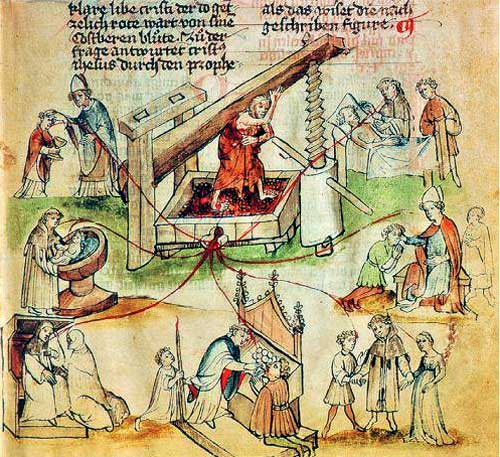 klare libe cristi der do get
zelich rote wart von sine
Costberen blute. Czu der
frage antwirtet crist9
ihesus durch den prophe
als das wiset die noch
geschriben figure.